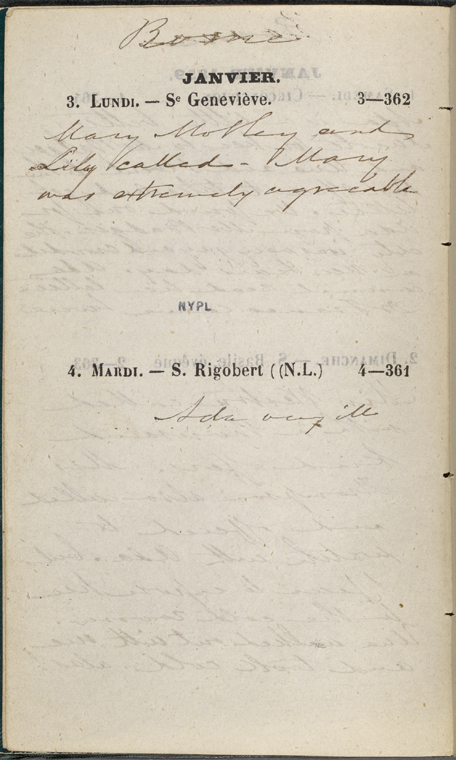 Rome
JANVIER.
3. LUNDI. — Sᵉ Geneviève. 3—362
Mary Motley and
Lily called - Mary
was extremely agreeable
NYPL
4. MARDI. — S. Rigobert ((N.L.) 4—361
Ada very ill